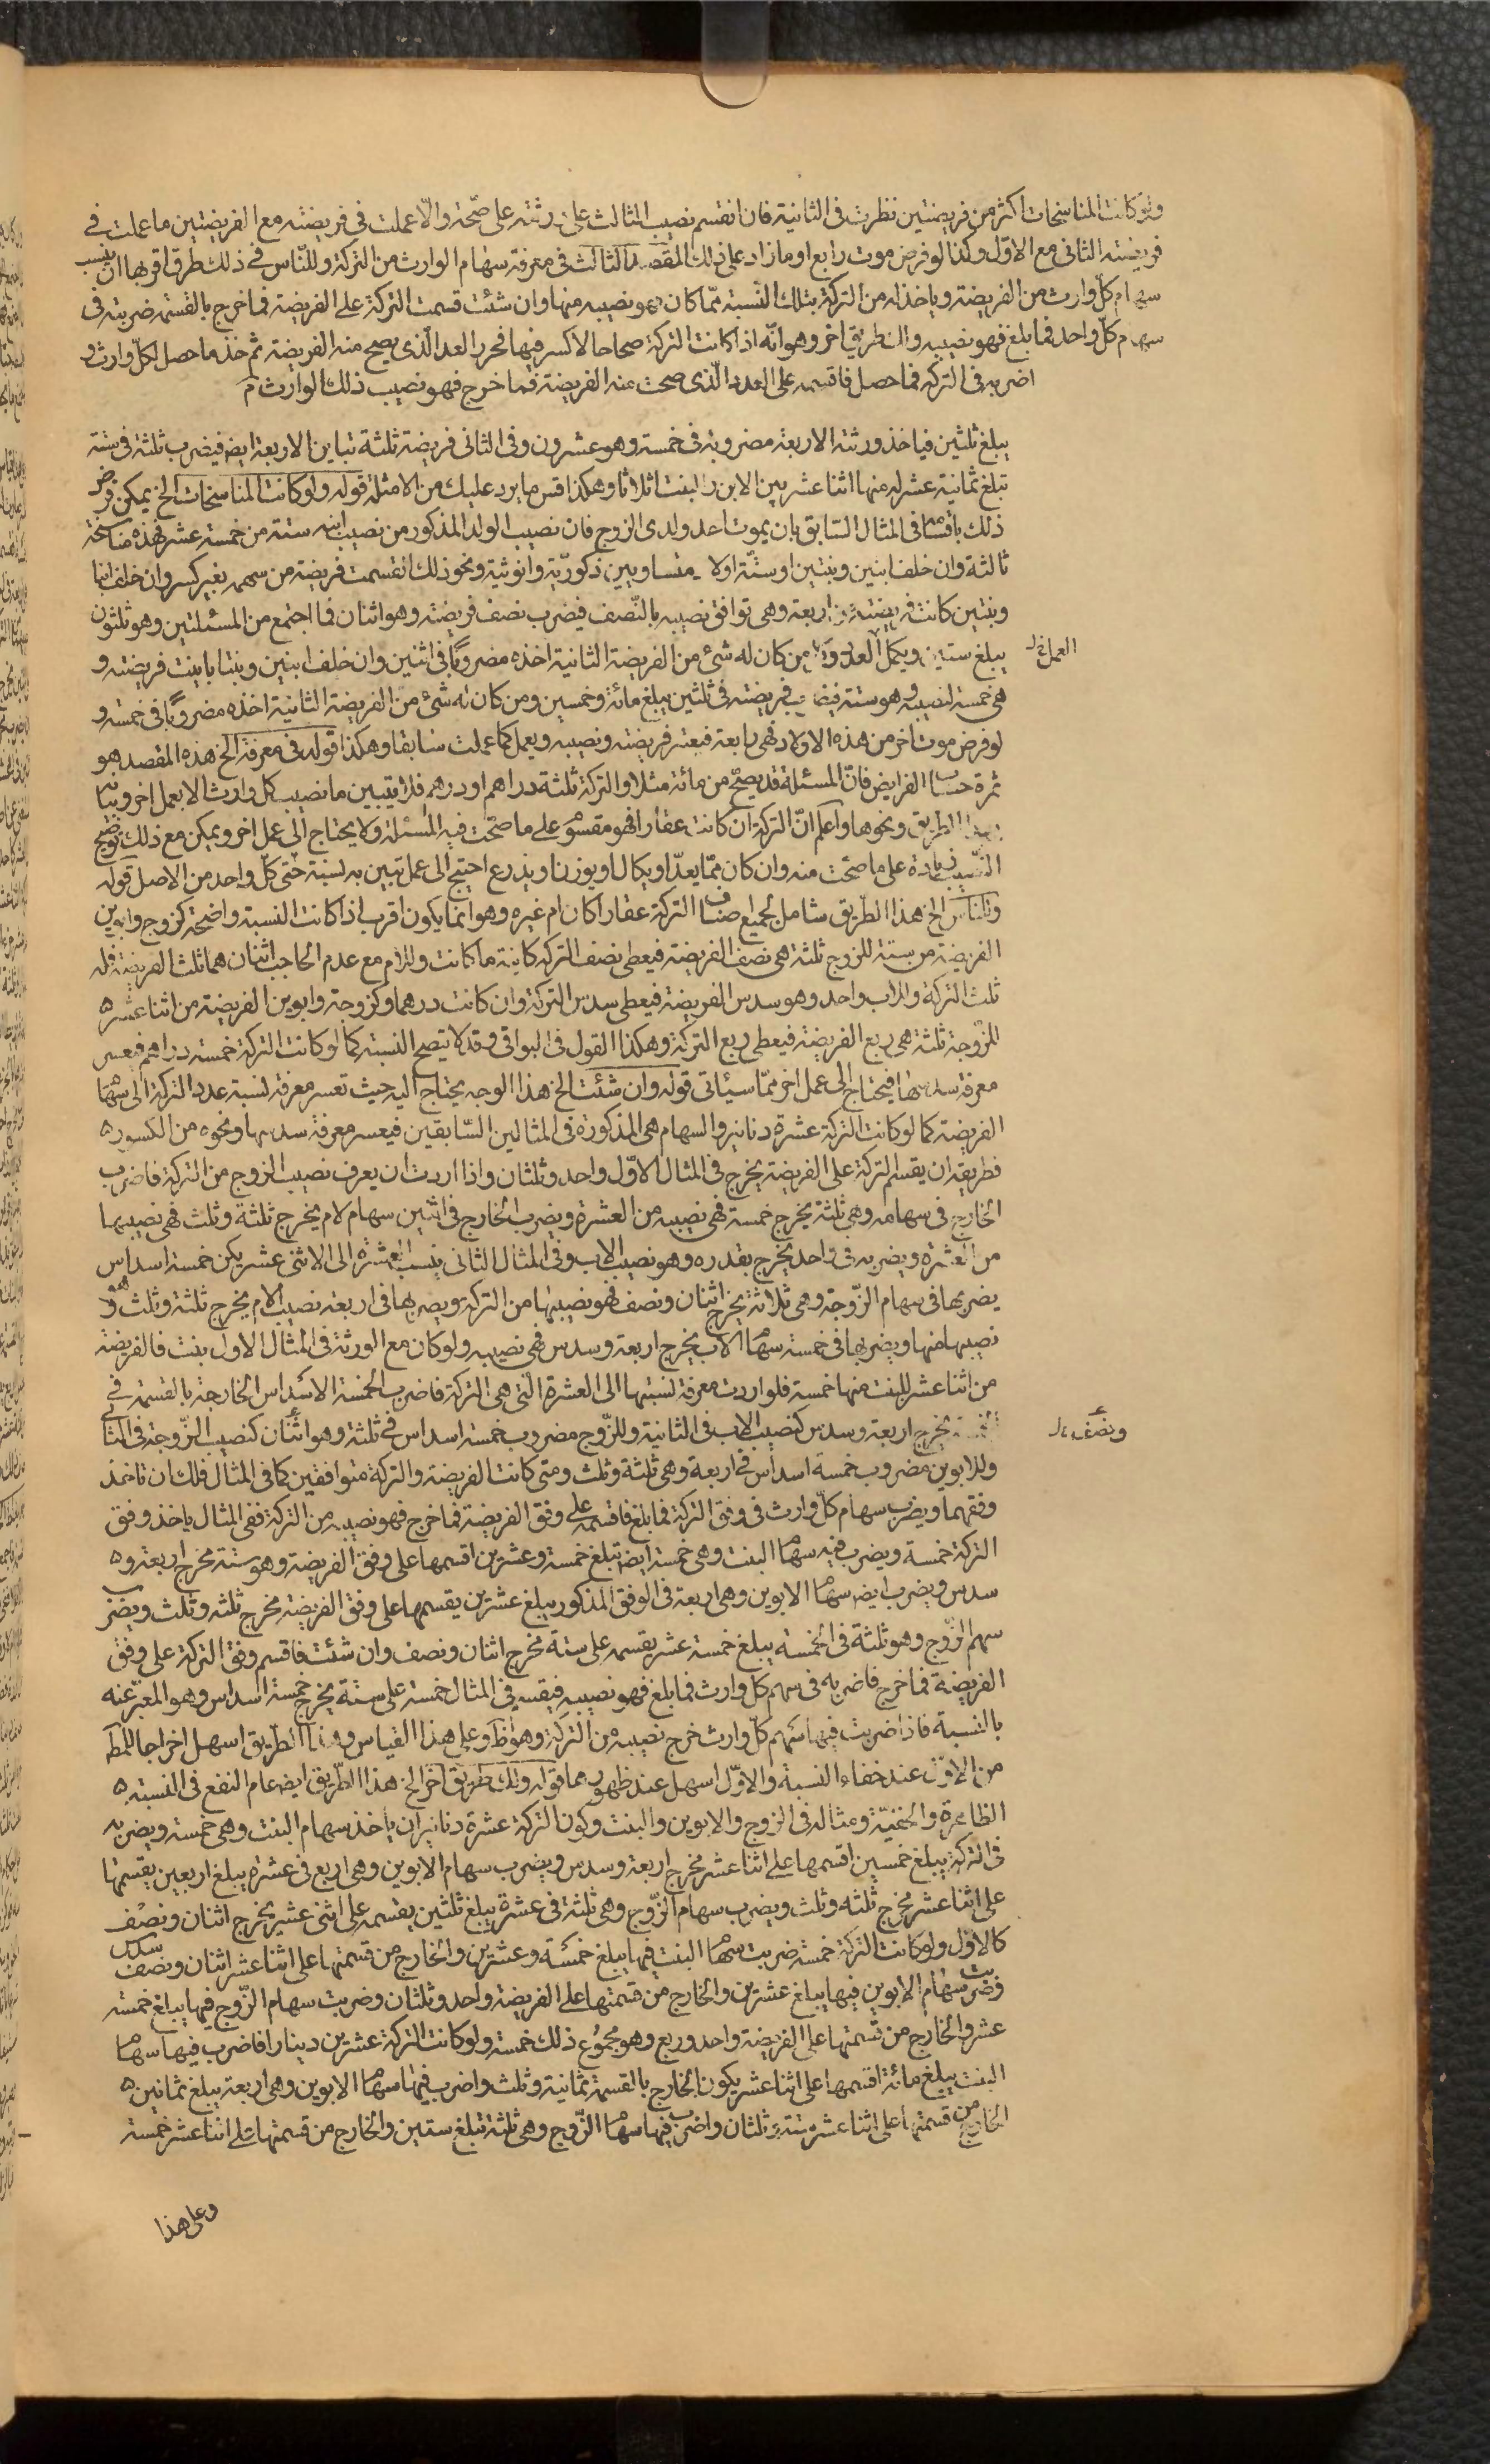 ولو كانت المناسخات اكثر من فريضتين نظرت فى الثانية فان انقسم نصيب الثالث على ورثته على صحّة والّا عملت فى فريضته مع الفريضتين ما عملت فے
فريضته الثانى مع الاوّل وكذا لو فرض موت رابع او ما زاد على ذلك المقصد الثالث فى معرفة سهام الوارث من التركة وللنّاس فے ذلك طرق اقربها ان ينسب
سهام كلّ وارث من الفريضة وياخذ له من التركة بتلك النّسبة ممّا كان فهو نصيبه منها وان شئت قسمت التركة على الفريضة فما خرج بالقسمة ضربته فى
سهام كلّ واحد فما بلغ فهو نصيبه ولك طريق اخر وهو انّه اذا كانت التركة صحاحا لا كسر فيها فحرر العدد الّذى يصح منه الفريضة ثم خذ ما حصل لكلّ وارث و
اضربه فى التركة فما حصل فاقسمه على العدد الّذى صحت منه الفريضة فما خرج فهو نصيب ذلك الوارث م
يبلغ ثلثين فياخذ ورثته الاربعة مضروبة فى خمسة وهو عشرون وفى الثانى فريضة ثلثة تباين الاربعة ايض فيضرب ثلثة فى ستة
تبلغ ثمانية عشر له منها اثنا عشر بين الابن والبنت اثلاثا وهكذا قس ما يرد عليك من الامثلة قوله ولو كانت المناسخات الخ يمكن فرض
ذلك باقسامه فى المثال السّابق بان يموت احد ولدى الزوج فان نصيب الولد المذكور من نصيب ابنه ستة من خمسة عشر فهذه مناسخة
ثالثة وان خلف ابنين وبنتين او ستّة اولاد متساويين ذكوريّة وانوثية ونحو ذلك انقسمت فريضة من سهمه بغير كسر وان خلف ابنا
وبنتين كانت فريضته من اربعة وهى توافق نصيبه بالنّصف فيضرب نصف فريضته وهو اثنان فما اجتمع من المسئلتين وهو ثلثون
يبلغ ستين ويكمل العمل من كان له شئ من الفريضة الثانية اخذه مضروبا فى اثنين وان خلف ابنين وبنتا باينت فريضته و
هى خمسة لنصيبه وهو ستة فيضرب فريضته فى ثلثين يبلغ مائة وخمسين ومن كان له شئ من الفريضة الثانية اخذه مضروبا فى خمسة و
لو فرض موت اخر من هذه الاولاد فهى رابعة فيعتبر فريضته ونصيبه ويعمل كما عملت سابقا وهكذا قوله فى معرفة الخ هذه المقصد هو
ثمرة حساب الفرايض فانّ المسئلة قد يصحّ من مائة مثلا والتركة ثلثة دراهم او درهم فلا يتبين ما نصيب كل وارث الا بعمل اخر وبيانه
بهذا الطريق ونحوها واعلم انّ التركة ان كانت عقارا فهو مقسوم على ما صحّت فيه المسئلة ولا يحتاج الى عمل اخر ويمكن مع ذلك توضيح
النّصيب زيادة على ما صحّت منه وان كان ممّا يعدّ او يكال او يوزن او يذرع احتيج الى عمل تبيين به نسبة حتى كلّ واحد من الاصل قوله
وللنّاس الخ هذا الطّريق شامل لجميع اصناف التركة عقارا كان ام غيره وهو انما يكون اقرب اذا كانت النسبة واضحة كزوج وابوين
الفريضة من ستة للزوج ثلثة هى نصف الفريضة فيعطى نصف التركة كائنة ما كانت وللام مع عدم الحاجب اثنان هما ثلث الفريضة فله
ثلث التركة وللاب واحد وهو سدس الفريضة فيعطى سدس التركة وان كانت درهما وكزوجة وابوين الفريضة من اثنا عشر
للزّوجة ثلثة هى ربع الفريضة فيعطى ربع التركة وهكذا القول فى البواقى وقد لا يتضح النسبة كما لو كانت التركة خمسة دراهم فيعسر
معرفة سدسها فيحتاج الى عمل اخر ممّا سيأتى قوله وان شئت الخ هذا الوجه يحتاج اليه حيث تعسر معرفة نسبة عدد التركة الى سهام
الفريضة كما لو كانت التركة عشرة دنانير والسهام هى المذكورة فى المثالين السّابقين فيعسر معرفة سدسها ونحوه من الكسور
فطريقه ان يقسم التركة على الفريضة يخرج فى المثال الاوّل واحد وثلثان واذا اردت ان يعرف نصيب الزوج من التركة فاضرب
الخارج فى سهامه وهى ثلثة يخرج خمسة فهى نصيبه من العشرة ويضرب الخارج فى اثنين سهام لام يخرج ثلثة وثلث فهى نصيبها
من العشرة ويضربه فى واحد يخرج بقدره وهو نصيب الاب وفى المثال الثانى ينسب العشرة الى الاثنى عشر يكن خمسة اسداس
يضربها فى سهام الزّوجة وهى ثلاثة يخرج اثنان ونصف فهو نصيبها من التركة ويضربها فى اربعة نصيب الام يخرج ثلثة وثلث هو
نصيبها منها ويضربها فى خمسة سهام الاب يخرج اربعة وسدس فهى نصيبه ولو كان مع الورثة فى المثال الاول بنت فالفريضة
من اثنا عشر للبنت منها خمسة فلو اردت معرفة نسبتها الى العشرة الّتى هى التركة فاضرب الخمسة الاسداس الخارجة بالقسمة فے
خمسة يخرج اربعة وسدس كنصيب الاب فى الثانية وللزّوج مضروب خمسة اسداس فے ثلثة وهو اثنان كنصيب الزّوجة فى الثانى
وللابوين مضروب خمسة اسداس فے اربعة وهى ثلثة وثلث ومتى كانت الفريضة والتركة متوافقين كما فى المثال فلك ان تاخذ
وفقهما ويضرب سهام كلّ وارث فى وفق التركة فما بلغ فاقسمه على وفق الفريضة فما خرج فهو نصيبه من التركة ففى المثال ياخذ وفق
التركة خمسة ويضرب فيه سهام البنت وهى خمسة ايض تبلغ خمسة وعشرين اقسمها على وفق الفريضة وهو ستة يخرج اربعة و
سدس ويضرب ايض سهام الابوين وهى اربعة فى الوفق المذكور يبلغ عشرين يقسمها على وفق الفريضة يخرج ثلثه وثلث ويضرب
سهم الزّوج وهو ثلثة فى الخمسة يبلغ خمسة عشر يقسمه على ستة يخرج اثنان ونصف وان شئت فاقسم وفق التركة على وفق
الفريضة فما خرج فاضربه فى سهم كلّ وارث فما بلغ فهو نصيبه فيقسم فى المثال خمسة على ستة يخرج خمسة اسداس وهو المعبّر عنه
بالنسبة فاذا ضربت فيها سهم كلّ وارث خرج نصيبه من التركة وهو ظ وعلى هذا القياس وهذا الطّريق اسهل اخراجا للمط
من الاوّل عند خفاء النسبة والاوّل اسهل عند ظهورهما قوله ولك طريق اخر الخ هذا الطّريق ايض عام النفع فى النسبة
الظاهرة والخفيّة ومثاله فى الزوج والابوين والبنت وكون التركة عشرة دنانير ان ياخذ سهام البنت وهى خمسة ويضربه
فى التركة يبلغ خمسين اقسمها على اثنا عشر يخرج اربعة وسدس ويضرب سهام الابوين وهى اربع فى عشرة يبلغ اربعين يقسمها
على اثنا عشر يخرج ثلثه وثلث ويضرب سهام الزّوج وهى ثلثة فى عشرة يبلغ ثلثين يقسمه على اثنى عشر يخرج اثنان ونصف
كالاوّل ولو كانت التركة خمسة ضربت سهام البنت فيها يبلغ خمسة وعشرين والخارج من قسمتها على اثنا عشر اثنان ونصف سدس
وضربت سهام الابوين فيها يبلغ عشرين والخارج من قسمتها على الفريضة واحد وثلثان وضربت سهام الزّوج فيها يبلغ خمسة
عشر والخارج من قسمتها على الفريضة واحد وربع وهو مجموع ذلك خمسة ولو كانت التركة عشرين دينارا فاضرب فيها سهام
البنت يبلغ مائة اقسمها على اثنا عشر يكون الخارج بالقسمة ثمانية وثلث واضرب فيها سهام الابوين وهى اربعة يبلغ ثمانين
الخارج من قسمتها على اثنا عشر ستة وثلثان واضرب فيها سهام الزّوج وهى ثلثة تبلغ ستين والخارج من قسمتها على اثنا عشر خمسة
وعلى هذا
العمل
ونصف